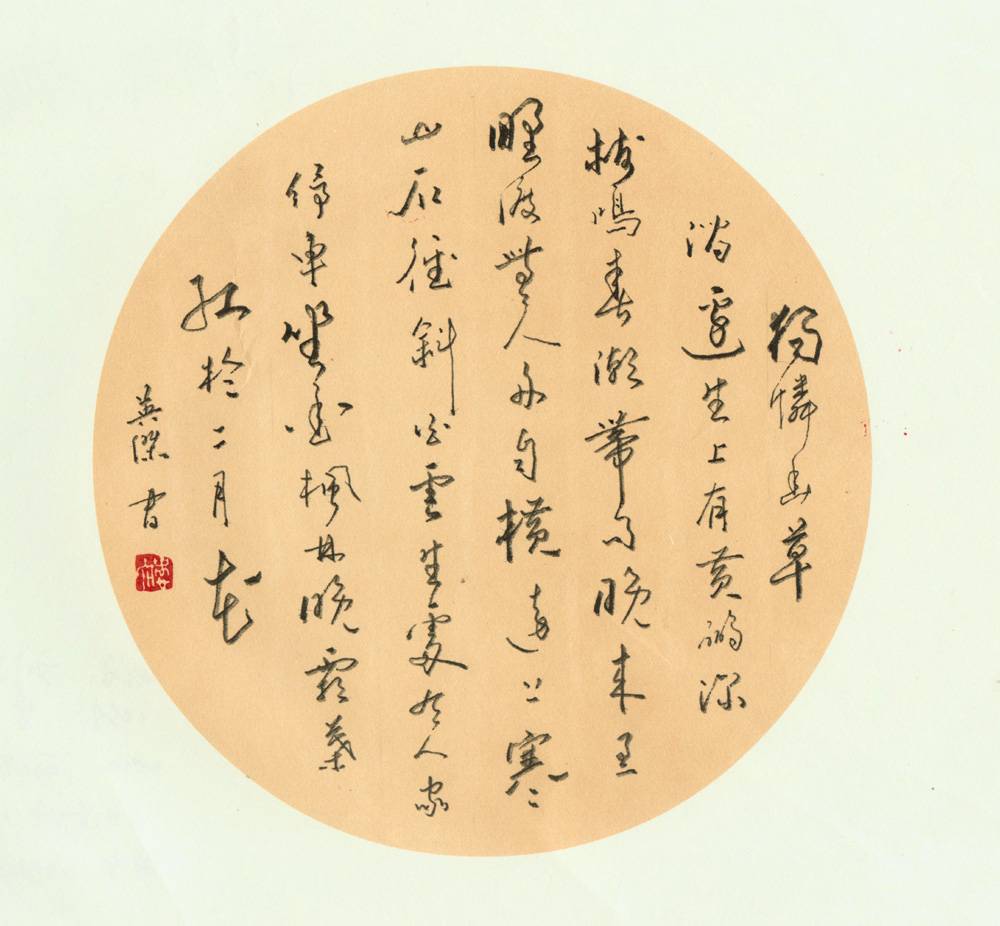 獨憐幽草
澗邊生上有黃鸝深
樹鳴春潮帶雨晚來急
野渡無人舟自橫遠上寒
山石徑斜白雲生處有人家
停車坐愛楓林晚霜葉
紅於二月花
英傑書